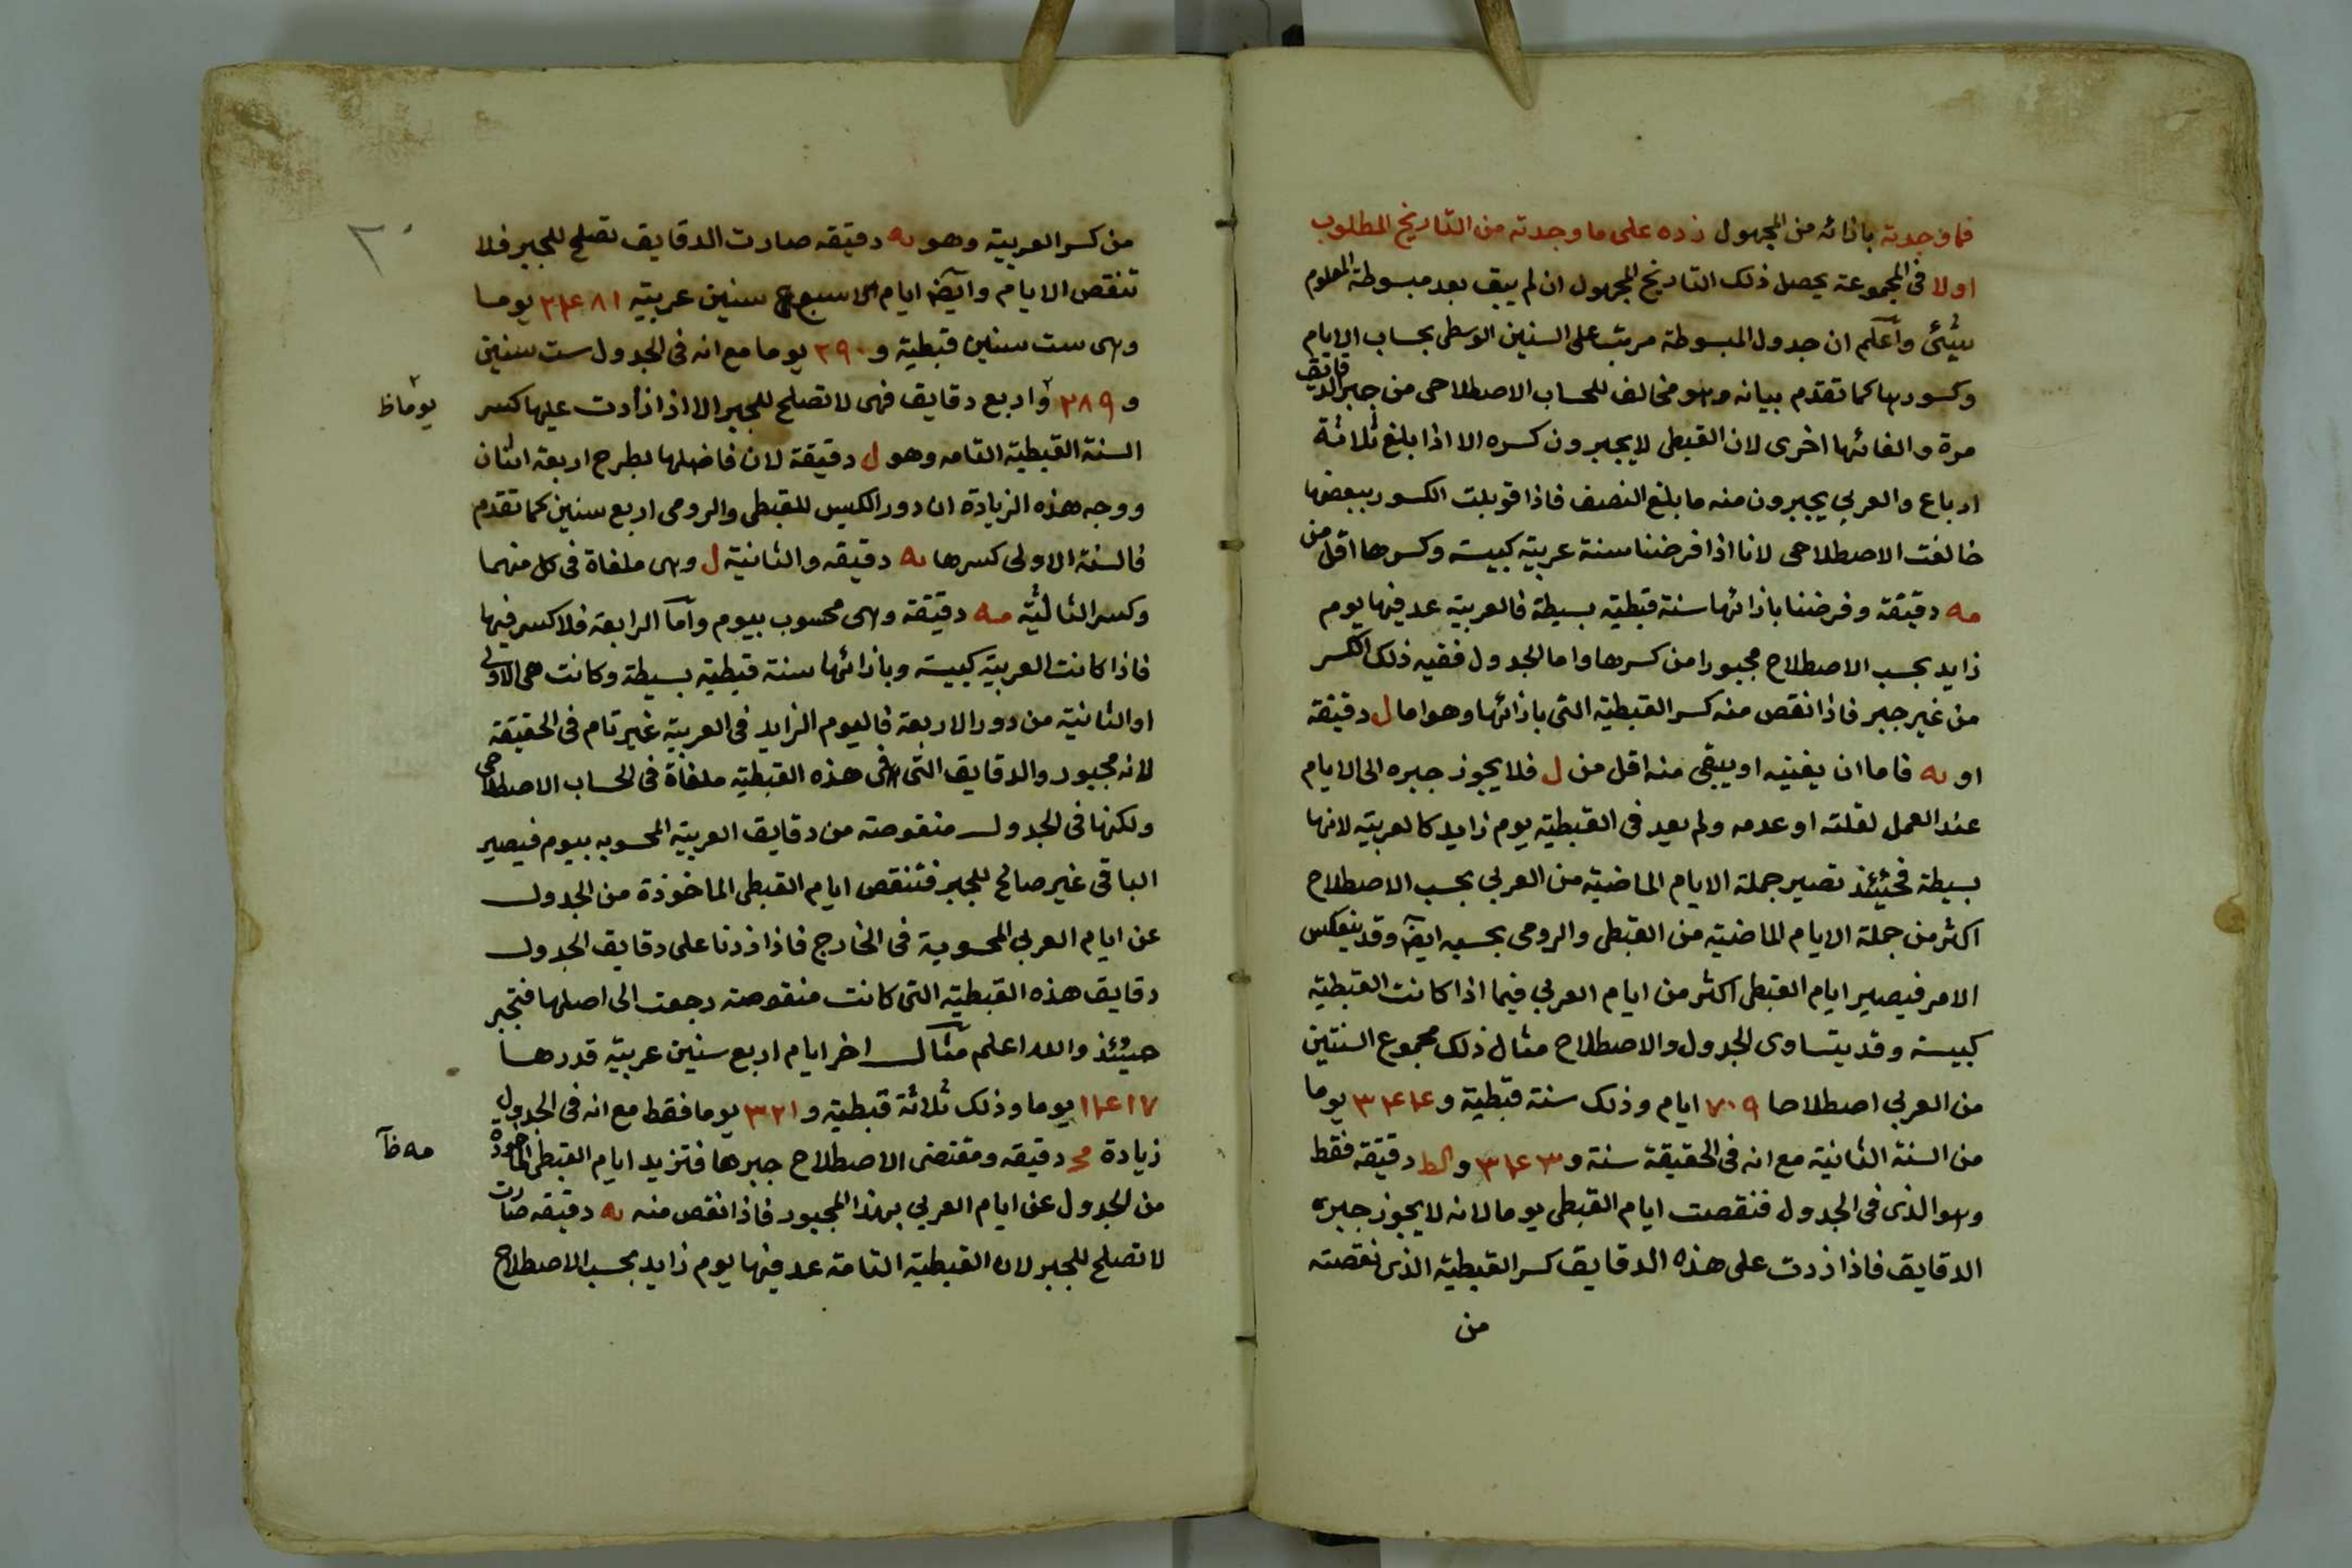 فما وجدته بازائه من المجهول زده على ما وجدته من التاريخ المطلوب
اولا فى المجموعة يحصل ذلك التاريخ المجهول ان لم يبق بعد مبسوطة المعلوم
شيئ واعلم ان جدول المبسوطة مرتب على السنين الوسطى بحساب الايام
وكسورها كما تقدم بيانه وهو مخالف للحساب الاصطلاحى من جبر الدقايق
مرة والغائها اخرى لان القبطى لا يجبرون كسره الا اذا بلغ ثلاثة
ارباع والعربي يجبرون منه ما بلغ النصف فاذا قوبلت الكسور ببعضها
خالفت الاصطلاحى لانا اذا فرضنا سنة عربية كبيسة وكسرها اقل من
مه دقيقة وفرضنا بازائها سنة قبطية بسيطة فالعربية عد فيها يوم
زايد بحسب الاصطلاح مجبورا من كسرها واما الجدول ففيه ذلك الكسر
من غير جبر فاذا نقص منه كسر القبطية التى بازائها وهو اما ل دقيقة
او ىه فاما ان يفنيه او يبقى منه اقل من ل فلا يجوز جبره الى الايام
عند العمل لقلته او عدمه ولم يعد فى القبطية يوم زايد كالعربية لانها
بسيطة فحينئذ تصير جملة الايام الماضية من العربي بحسب الاصطلاح
اكثر من جملة الايام الماضية من القبطى والرومى بحسبه ايضا وقد ينعكس
الامر فيصير ايام القبطى اكثر من ايام العربي فيما اذا كانت القبطية
كبيسة وقد يتساوى الجدول والاصطلاح مثال ذلك مجموع السنتين
من العربي اصطلاحا ٧٠٩ ايام وذلك سنة قبطية و ٣٤٤ يوما
من السنة الثانية مع انه فى الحقيقة سنة و ٣٤٣ و الط دقيقة فقط
وهو الذى فى الجدول فنقصت ايام القبطى يوما لانه لا يجوز جبره
الدقايق فاذا زدت على هذه الدقايق كسر القبطية الذى نقصته
من
من كسر العربية وهو ىه دقيقه صارت الدقايق تصلح للجبر فلا
تنقص الايام وايضا ايام سبع سنين عربية ٢٤٨١ يوما
وهى ست سنين قبطية و ٢٩٠ يوما مع انه فى الجدول ست سنين
و ٢٨٩ واربع دقايق فهى لا تصلح للجبر الا اذا زادت عليها كسر
يوما ظ
السنة القبطية التامه وهو ل دقيقة لان فاضلها بطرح اربعة اثنان
ووجه هذه الزيادة ان دور الكبس للقبطى والرومى اربع سنين كما تقدم
فالسنة الاولى كسرها ىه دقيقه والثانية ل وهى ملغاة فى كل منهما
وكسر الثالثة مه دقيقة وهى محسوب بيوم واما الرابعة فلا كسر فيها
فاذا كانت العربية كبيسة وبازائها سنة قبطية بسيطة وكانت هى الاولى
او الثانية من دور الاربعة فاليوم الزايد فى العربية غير تام فى الحقيقة
لانه مجبور والدقايق التى فى هذه القبطية ملغاة فى الحساب الاصطلاحى
ولكنها فى الجدول منقوصة من دقايق العربية المحسوبه بيوم فيصير
الباقى غير صالح للجبر فتنقص ايام القبطى الماخوذة من الجدول
عن ايام العربي المحسوبة فى الخارج فاذا زدنا على دقايق الجدول
دقايق هذه القبطية التى كانت منقوصة رجعت الى اصلها فتجبر
حينئذ والله اعلم مثال اخر ايام اربع سنين عربية قدرها
١٤١٧ يوما وذلك ثلاثة قبطية و ٣٢١ يوما فقط مع انه فى الجدول
زيادة دقيقه ومقتضى الاصطلاح جبرها فتزيد ايام القبطى الماخوذة
مه ظ
من الجدول عن ايام العربي بهذا المجبور فاذا نقص منه ىه دقيقه صارت
لا تصلح للجبر لان القبطية التامة عد فيها يوم زايد بحسب الاصطلاح